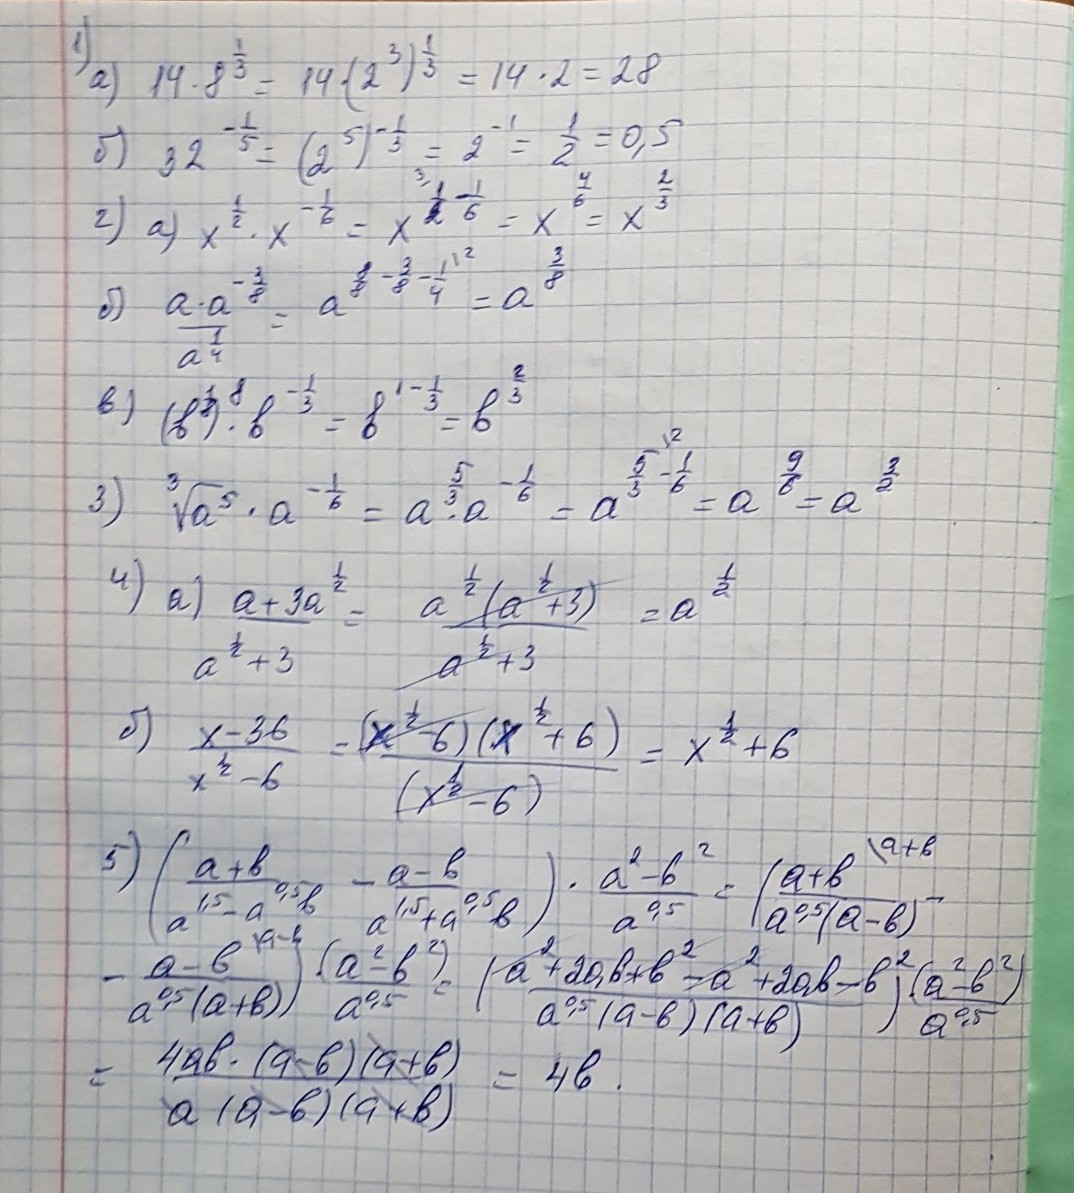 1)
а) 14 · 8^(1/3) = 14 · (2^3)^(1/3) = 14 · 2 = 28
б) 32^(-1/5) = (2^5)^(-1/3) = 2^(-1) = 1/2 = 0,5
2) а) x^(1/2) · x^(-1/6) = x^(1/2 \3 - 1/6) = x^(4/6) = x^(2/3)
б) (a · a^(-3/8)) / a^(1/4) = a^(8/8 - 3/8 - 1/4 \2) = a^(3/8)
в) (b^(1/8))^8 · b^(-1/3) = b^(1 - 1/3) = b^(2/3)
3) ∛a^5 · a^(-1/6) = a^(5/3) · a^(-1/6) = a^(5/3 \2 - 1/6) = a^(9/6) = a^(3/2)
4) а) (a + 3a^(1/2)) / (a^(1/2) + 3) = a^(1/2)(a^(1/2) + 3) / (a^(1/2) + 3) = a^(1/2)
б) (x - 36) / (x^(1/2) - 6) = (x^(1/2) - 6)(x^(1/2) + 6) / (x^(1/2) - 6) = x^(1/2) + 6
5) ((a + b) / (a^1,5 - a^0,5 b) - (a - b) / (a^1,5 + a^0,5 b)) · (a^2 - b^2) / a^0,5 = ((a + b \a+b) / (a^0,5 (a - b)) -
- (a - b \a-b) / (a^0,5 (a + b))) · (a^2 - b^2) / a^0,5 = ((a^2 + 2ab + b^2 - a^2 + 2ab - b^2) / (a^0,5 (a - b)(a + b))) · (a^2 - b^2) / a^0,5
= 4ab · (a - b)(a + b) / (a (a - b)(a + b)) = 4b.